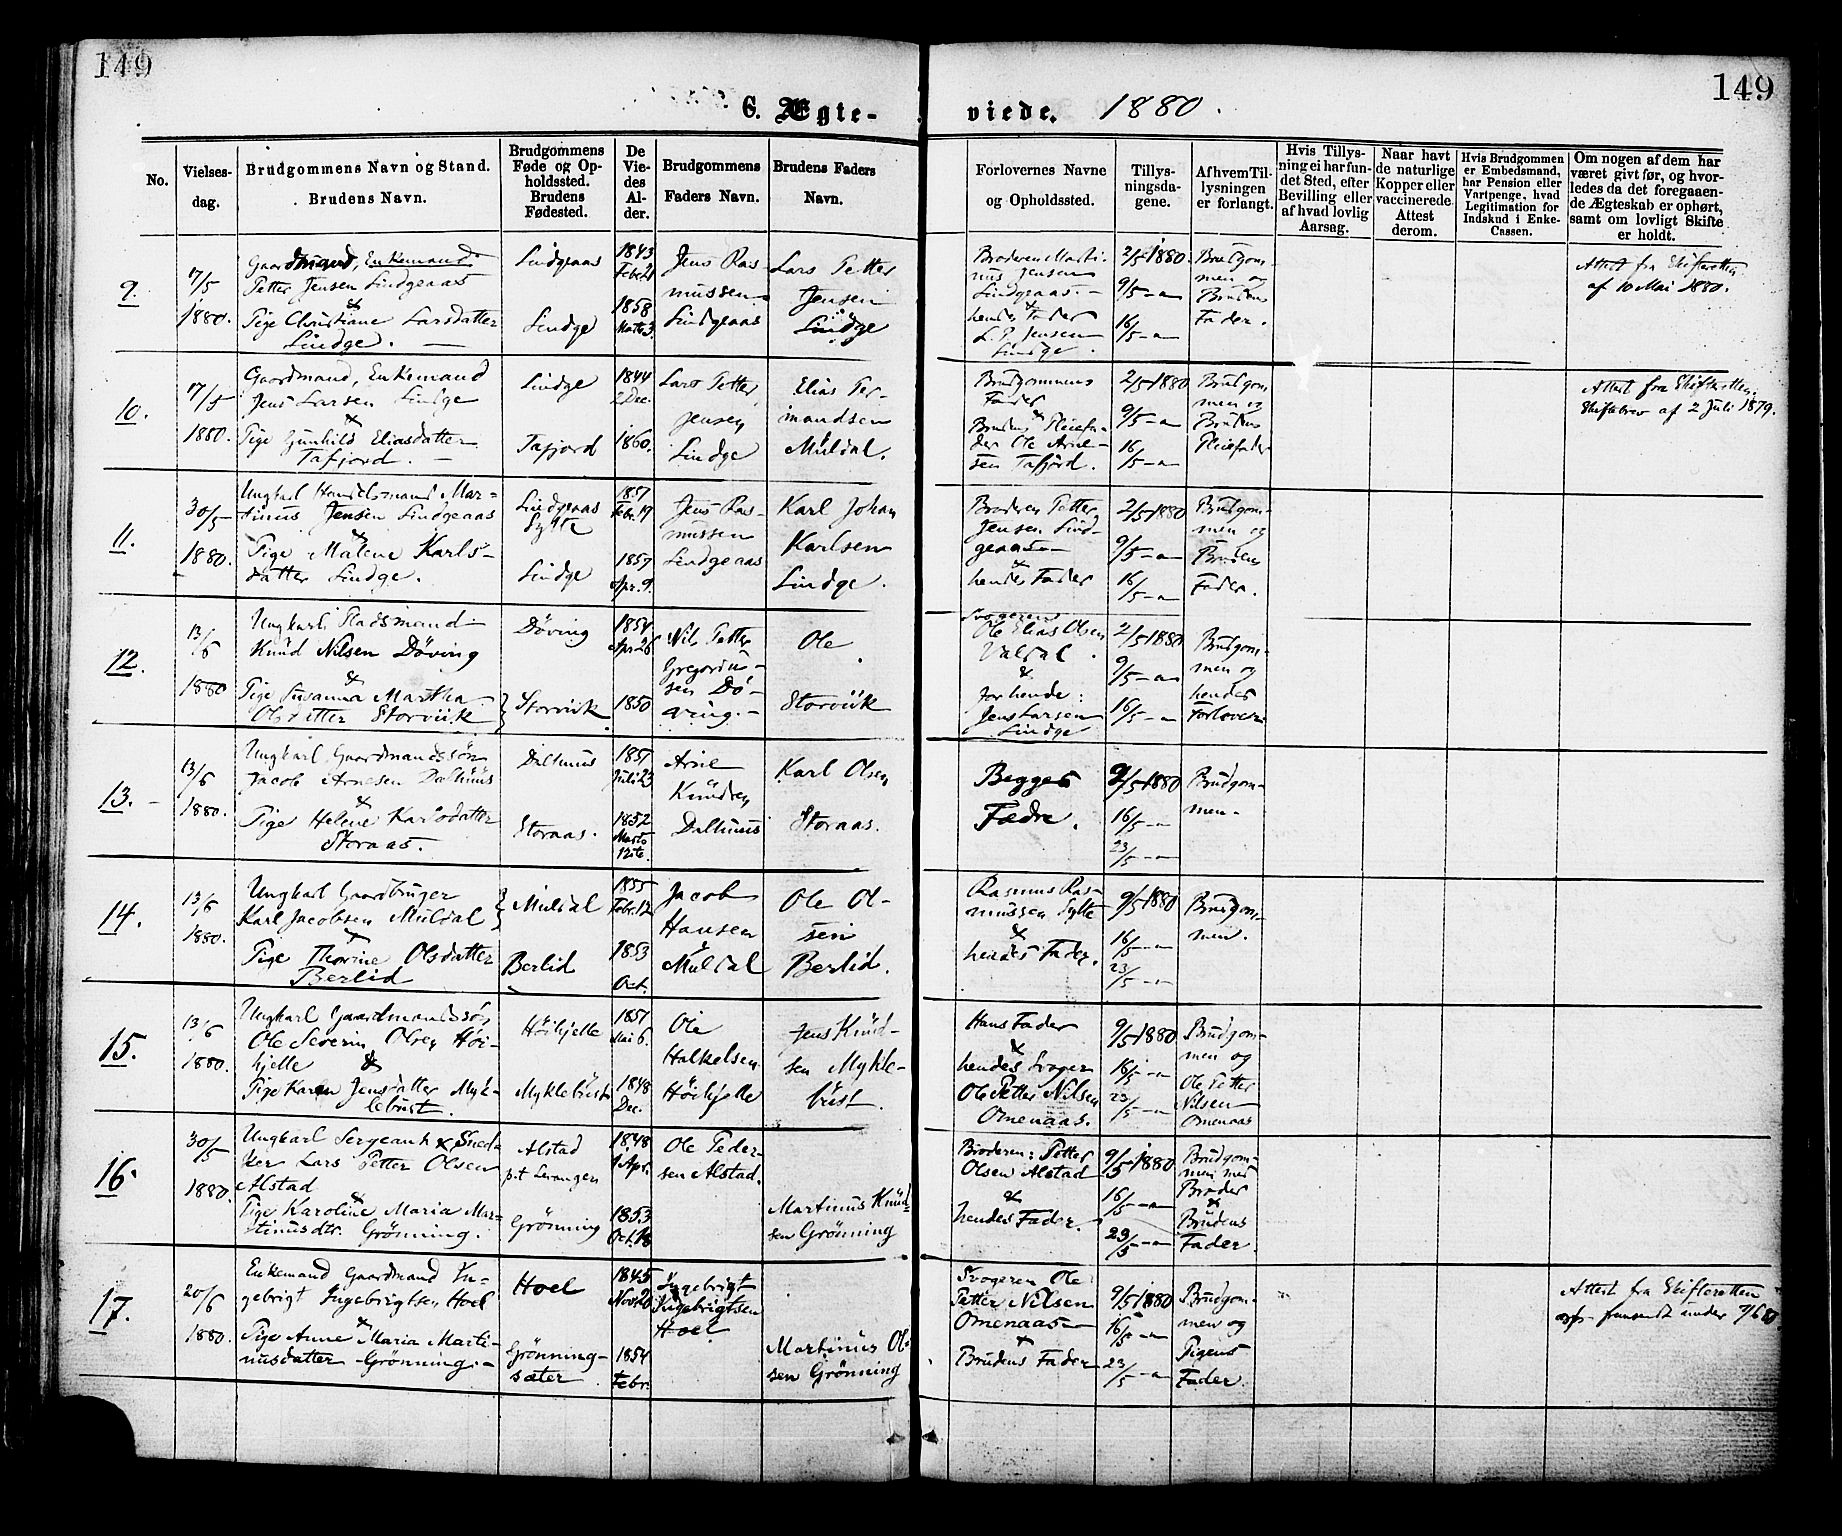 149
149
6. Ægte-
viede. 1880.
No.
Vielses-
dag.
Brudgommens Navn og Stand.
Brudens Navn.
Brudgommens
Føde og Op-
holdssted.
Brudens
Fødested.
De
Vie-
des
Al-
der.
Brudgommens
Faders Navn.
Brudens Faders
Navn.
Forlovernes Navne
og Opholdssted.
Tillys-
ningsda-
gene.
Af hvem Til-
lysningen
er forlangt.
Hvis Tillys-
ning ei har fun-
det Sted, efter
Bevilling eller
af hvad lovlig
Aarsag.
Naar havt
de naturlige
Kopper eller
vaccinerede.
Attest
derom.
Hvis Brudgommen
er Embedsmand,
har Pension eller
Vartpenge, hvad
Legitimation for
Indskud i Enke-
Cassen.
Om nogen af dem har
været givt før, og hvor-
ledes da det foregaaen-
de Ægteskab er ophørt,
samt om lovligt Skifte
er holdt.
9.
17/5
1880.
Gaardmand, Enkemand
Petter Jensen Lindgeaas
&
Pige Christiane Larsdatter
Lindge.
Lindgeaas
Lindge
1843
Febr. 21
1858
Marts 3.
Jens Ras-
mussen
Lindgeaas
Lars Petter
Jensen
Lindge
Broderen Marti-
nus Jensen
Lindgeaas.
&
hendes Fader
L. P. Jensen
Lindge.
2/5 1880
9/5 - "
16/5 - "
Brudgom-
men og
Brudens
Fader.
Attest fra Skifteretten
af 10 Mai 1880.
10.
17/5
1880.
Gaardmand, Enkemand
Jens Larsen Lindge
&
Pige Gunhild Eliasdatter
Tafjord.
Lindge
Tafjord
1844
2 Dec.
1860.
Lars Petter
Jensen
Lindge
Elias Per-
mandsen
Muldal.
Brudgommens
Fader
&
Brudens Pleiefa-
der Ole Arne-
sen Tafjord.
2/5 1880
9/5 - "
16/5 - "
Brudgom-
men og
Brudens
Pleiefader
Attest fra Skifteretten.
Skiftebrev af 2 Juli 1879.
11.
30/5
1880.
Ungkarl Handelsmand Mar-
tinus Jensen Lindgeaas
&
Pige Malene Karls-
datter Lindge.
Lindgeaas
Sylte
Lindge
1857
Febr. 19
1857
Apr. 9.
Jens Ras-
mussen
Lindgeaas
Karl Johan
Karlsen
Lindge.
Broderen Petter
Jensen Lind-
geaas
&
hendes Fader
2/5 1880
9/5 - "
16/5 - "
Brudgom-
men og
Brudens
Fader.
12.
13/6
1880
Ungkarl Pladsmand
Knud Nilsen Döving
&
Pige Susanna Martha
Olsdatter Storviik
Döving
Storviik
1854
Apr 26
1850
Nils Petter
Gregorius-
sen Dö-
ving.
Ole
Storviik
Svogeren
Ole Elias Olsen
Valdal.
&
for hende:
Jens Larsen
Lindge
2/5 1880
9/5 - "
16/5 - "
Brudgom-
men og
hendes
Forlover.
13.
13/6
1880.
Ungkarl Gaardmandssøn
Jacob Arnesen Dalhuus
&
Pige Helene Karlsdatter
Storaas.
Dalhuus
Storaas.
1851
Juli 23
1852
Marts
12te.
Arne
Knudsen
Dalhuus
Karl Olsen
Storaas.
Begges
Fædre.
9/5 1880
16/5 - "
23/5 - "
Brudgom-
men.
14.
13/6
1880.
Ungkarl Gaardbruger
Karl Jacobsen Muldal
&
Pige Thorine Olsdatter
Berlid
Muldal
Berlid
1855
Febr. 12
1853
Oct.
Jacob
Hansen
Muldal
Ole Ol-
sen
Berlid.
Rasmus Ras-
mussen Sylte
&
hendes Fader.
9/5 1880
16/5 - "
23/5 - "
Brudgom-
men.
15.
13/6
1880.
Ungkarl Gaardmandssøn
Ole Severin Olsen Höi-
hjelle &
Pige Karen Jensdatter Myk-
lebust.
Höihjelle
Myklebust
1851
Mai 6.
1848
Dec.
Ole
Halkelsen
Höihjelle
Jens Knud-
sen Mykle-
bust.
Hans Fader
&
hendes Svoger
Ole Petter Nilsen
Omenaas.
9/5 1880
16/5 - "
23/5 - "
Brudgom-
men og
Ole Petter
Nilsen
Omenaas
16.
30/5
1880.
Ungkarl Sergeant & Sned-
ker Lars Petter Olsen
Alstad
&
Pige Karoline Maria Mar-
tinusdtr. Grönning.
Alstad
p.t. Levanger
Grönning
1848
1 Apr.
1853
Oct. 18
Ole Peder-
sen Alstad.
Martinus Knud-
sen Grönning
Broderen: Petter
Olsen Alstad
&
hendes Fader.
9/5 1880
16/5 - "
23/5 - "
Brudgom-
men med
Broder
&
Brudens
Fader.
17.
20/6
1880.
Enkemand Gaardmand In-
gebrigt Ingebrigtsen Hoel
&
Pige Anne Maria Marti-
nusdatter Grönning.
Hoel
Grönning-
sæter
1845
Nov. 20
1854
Febr.
Ingebrigt
Ingebrigtsen
Hoel
Martinus Ol-
sen Grönning
Svogeren Ole
Petter Nilsen
Omenaas
&
Brudens Fader
9/5 1880
16/5 - "
23/5 - "
Brudgom-
men og
Pigens
Fader.
Attest fra Skifteretten
fremsendt under 7/6 80.